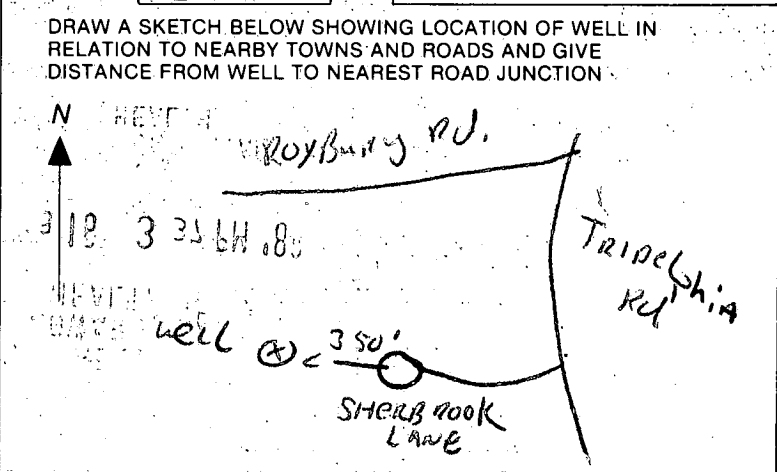 DRAW A SKETCH BELOW SHOWING LOCATION OF WELL IN
RELATION TO NEARBY TOWNS AND ROADS AND GIVE
DISTANCE FROM WELL TO NEAREST ROAD JUNCTION
N
RoyBury Rd.
TRIDelphiA
Rd
well
350'
SHERBROOK
LANE